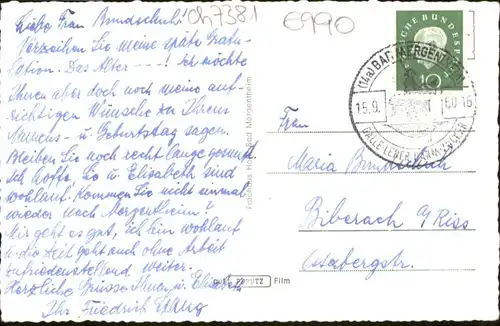 ch7381
6990
Liebe Frau Bundschuh!
Verzeihen Sie meine späte Gratu-
lation. Das Alter ---! Ich möchte
Ihnen aber doch noch meine auf-
richtigen Wünsche zu Ihrem
Namens- u. Geburtstag sagen.
Bleiben Sie noch recht lange gesund.
Ich hoffe, Sie u. Elisabeth sind
wohlauf. Kommen Sie nicht einmal
wieder nach Mergentheim?
Mir geht es gut, ich bin wohlauf
u. die Zeit geht auch ohne Arbeit
zufriedenstellend weiter.
Herzliche Grüsse Ihnen u. Elisabeth
Ihr Friedrich
Bad Mergentheim
auf PERUTZ Film
DEUTSCHE BUNDESPOST
10
(14a) BAD MERGENTHEIM
15.9. 60-16
Frau
Maria Bundschuh
Biberach a/Riss